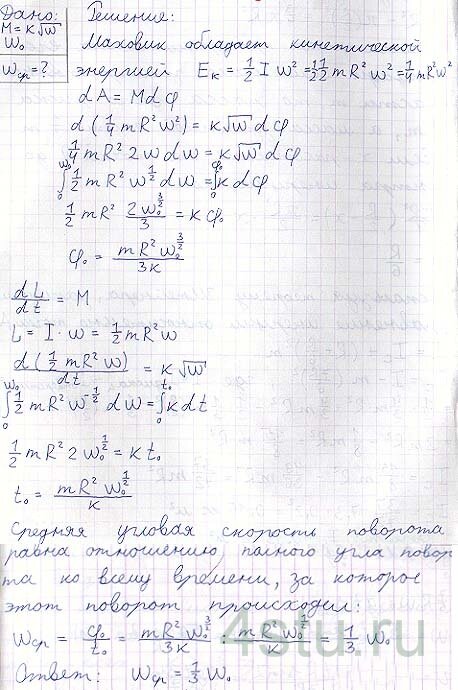 Дано:
M = K√w
w₀
wср = ?
Решение:
Маховик обладает кинетической
энергией Eк = 1/2 I w² = 1/2 1/2 mR² w² = 1/4 mR²w²
dA = Mdφ
d(1/4 mR²w²) = K√w dφ
1/4 mR² 2w dw = K√w dφ
∫₀^w₀ 1/2 mR² w^(1/2) dw = ∫₀^φ₀ K dφ
1/2 mR² 2w₀^(3/2)/3 = K φ₀
φ₀ = mR² w₀^(3/2)/3K
dL/dt = M
L = I · w = 1/2 mR²w
d(1/2 mR²w)/dt = K√w
∫₀^w₀ 1/2 mR² w^(-1/2) dw = ∫₀^t₀ K dt
1/2 mR² 2w₀^(1/2) = K t₀
t₀ = mR² w₀^(1/2)/K
Средняя угловая скорость поворота
равна отношению полного угла повор
та ко всему времени, за которое
этот поворот происходил:
wср = φ₀/t₀ = mR² w₀^(3/2)/3K : mR² w₀^(1/2)/K = 1/3 w₀
Ответ: wср = 1/3 w₀
4stu.ru